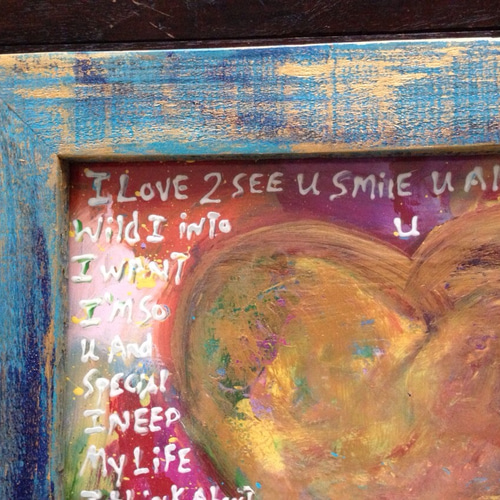 I LOVE 2 SEE U SMILE U Al
Wild I iNTO
U
I WANT
I'M SO
U And
SPECIAL
I NEED
My LiFE
I think About